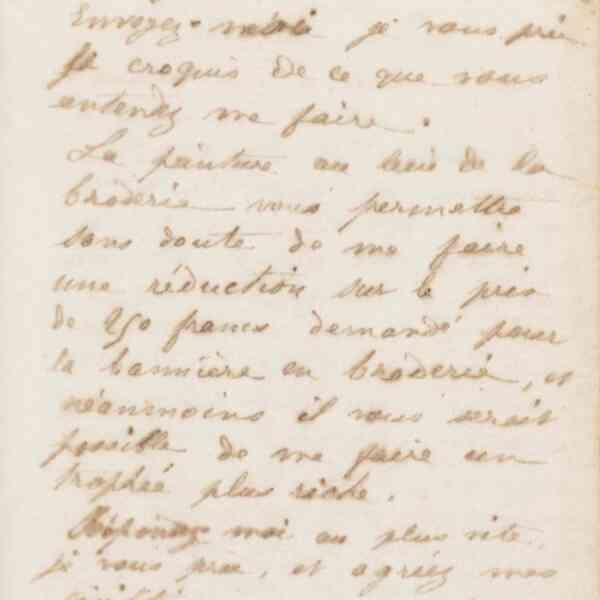 Envoyez-moi je vous prie
le croquis de ce que vous
entendez me faire.
La peinture au lieu de la
broderie vous permettra
sans doute de me faire
une réduction sur le prix
de 250 francs demandé pour
la bannière en broderie, et
néanmoins il vous serait
possible de me faire un
trophée plus riche.
Répondez moi au plus vite,
je vous prie, et agréez mes